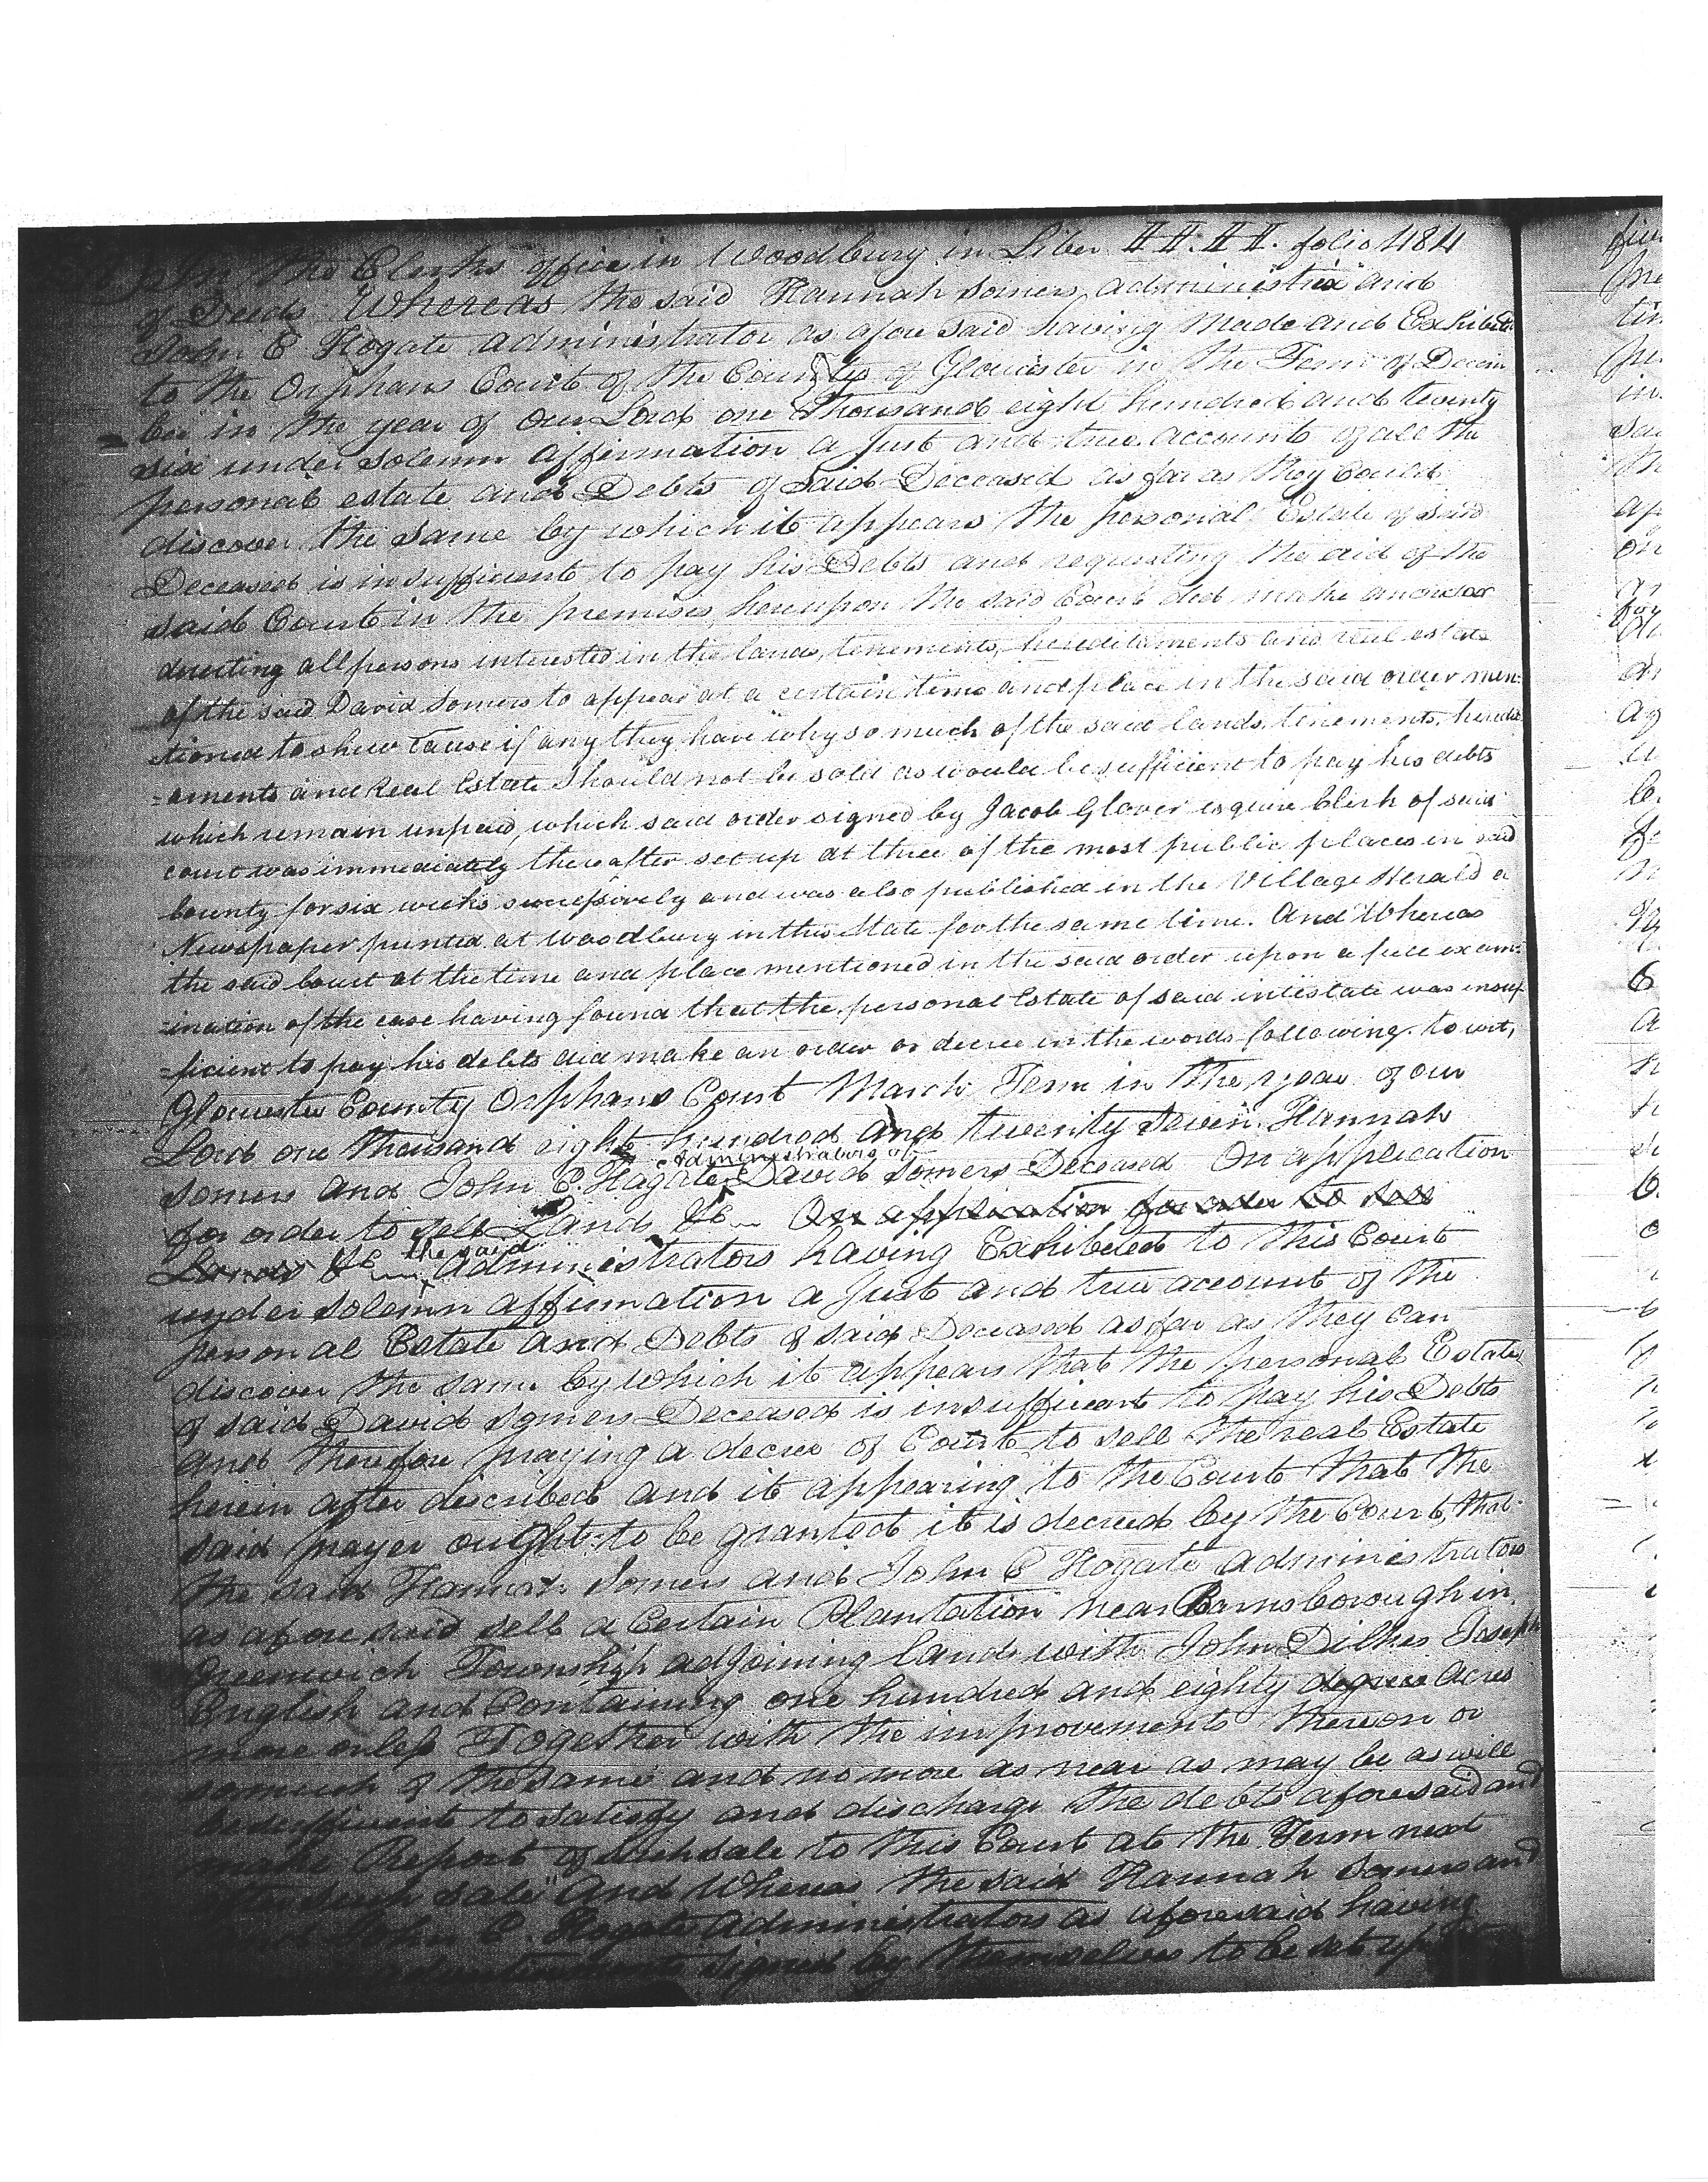 In the Clerks office in Woodbury in Liber II. II. folio 484
of Deeds Whereas the said Hannah Somers administrix and
John C Hogate administrator as afore said having Made and Exhibited
to the Orphans Court of the County of Gloucester in the Term of Decem
ber in the year of our Lord one Thousand eight hundred and twenty
six under solemn affirmation a Just and true account of all the
personal estate and Debts of said Deceased as far as they Could
discover the same by which it appears the personal Estate of said
Deceased is insufficient to pay his Debts and requesting the aid of the
said Court in the premises, hereupon the said Court did make an order
directing all persons interested in the lands, tenements, hereditaments and real estate
of the said David Somers to appear at a certain time and place in the said order men=
tioned to shew Cause if any they have why so much of the said lands, tenements, heredit
=aments and Real Estate Should not be sold as would be sufficient to pay his debts
which remain unpaid, which said order signed by Jacob Glover esquire Clerk of said
court was immediately thereafter set up at three of the most public places in said
County for six weeks successively and was also published in the Village Herald a
Newspaper printed at Woodbury in this State for the same time. And Whereas
the said Court at the time and place mentioned in the said order upon a full exam=
=ination of the case having found that the personal Estate of said intestate was insuf
=ficient to pay his debts did make an order or decree in the words following. to wit,
Gloucester County Orphans Court March Term in the year of our
Lord one thousand eight hundred and twenty seven Hannah
Somers and John C. Hogate administrators of David Somers Deceased On application
for order to sell Land &c On application for order to sell
Lands &c the said administrators having Exhibited to this Court
under solemn affirmation a Just and true account of the
personal Estate and Debts of said Deceased as far as they can
discover the same by which it appears that the personal Estate
of said David Somers Deceased is insufficient to pay his Debts
and therefore praying a decree of Court to sell the real Estate
herein after described and it appearing to the Court that the
said prayer ought to be granted it is decreed by the Court, that
the said Hannah Somers and John C Hogate administrators
as aforesaid sell a Certain Plantation near Barnsborough in
Greenwich Township adjoining lands with John Dilkes Joseph
English and Containing one hundred and eighty degrees acres
more or less Together with the improvements thereon or
so much of the same and no more as near as may be as will
be sufficient to satisfy and discharge the debts aforesaid and
make Report of such sale to this Court at the Term next
after such sale And Whereas the said Hannah Somers and
John C. Hogate administrators as aforesaid having
signed by themselves to be set up